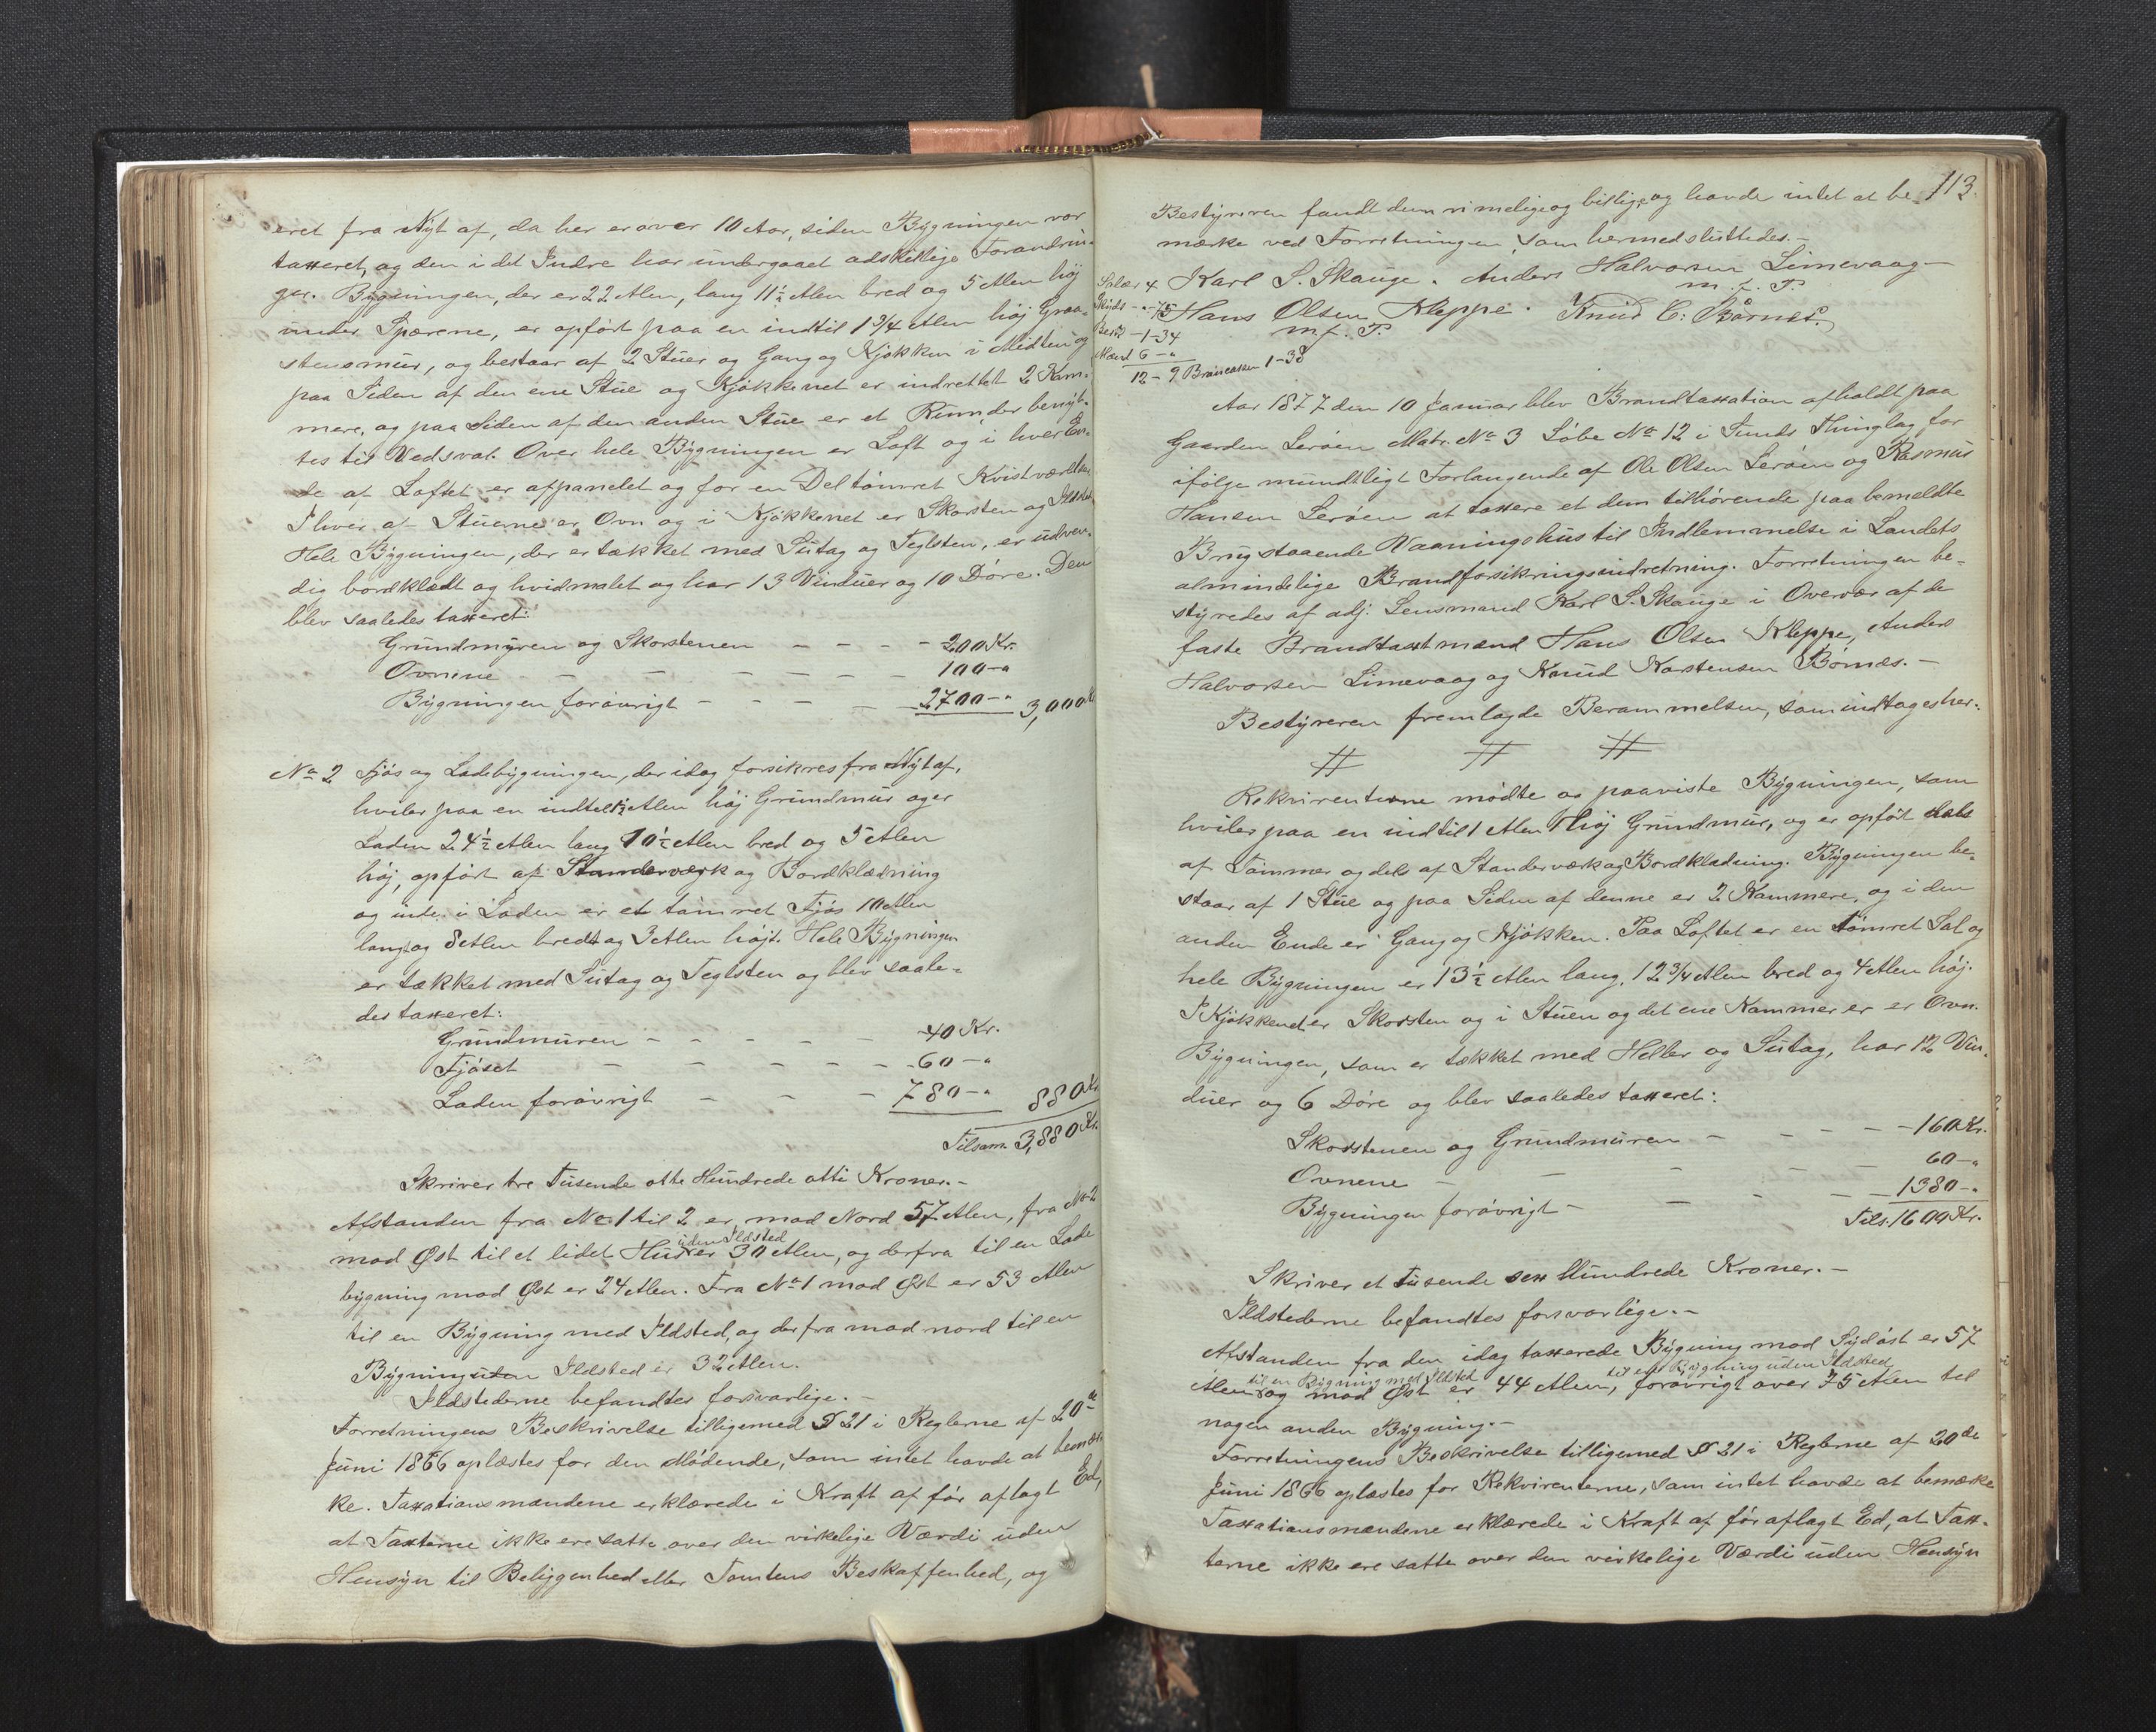 eret fra Nyt af, da her er over 10 Aar, siden Bygningen var
taxeret, og den i det Indre har undergaaet adskellige Forandrin-
ger. Bygningen, der er 22 Alen, lang 11½ Alen bred og 5 Alen høj
under Spærene, er opført paa en indtil 1¾ Alen høj Graa-
stensmur, og bestaar af 2 Stuer og Gang og Kjøkken i Midten og
paa Siden af den ene Stue og Kjøkkenet er indrettet 2 Kam-
mere, og paa Siden af den anden Stue er et Rum, der benyt-
tes til Vedsval. Over hele Bygningen er Loft og i hver En-
de af Loftet er afpanelet og for en Del tømret Kvistværelser
I hver af Stuerne er Ovn og i Kjøkkenet er Skorsten og Ildsted
Hele Bygningen, der er tækket med Sutag og Teglsten, er udven-
dig bordklædt og hvidmalet og har 13 Vinduer og 10 Døre. Den
blev saaledes taxeret:
Grundmuren og Skorstenen - - - - 200 Kr.
Ovnene - - - - - - 100 - "
Bygningen forøvrigt - - - - 2700 - " 3,000 Kr
No 2 Fjøs og Ladebygningen, der idag forsikres fra Nyt af,
hviler paa en indtil 1½ Alen høj Grundmur og er
Laden 24½ Alen lang 10½ Alen bred og 5 Alen
høj, opført af Standerværk og Bordklædning
og inde i Laden er et tømret Fjøs 10 Alen
langt og 8 Alen bredt og 3 Alen højt. Hele Bygningen
er tækket med Sutag og Teglsten og blev saale-
des taxeret:
Grundmuren - - - - - 40 Kr.
Fjøset - - - - - 60 - "
Laden forøvrigt - - - 780 - " 880 Kr.
Tilsam. 3,880 Kr.
Skriver tre Tusende otte Hundrede otti Kroner. -
Afstanden fra No 1 til 2 er mod Nord 57 Alen, fra No 2
uden Ildsted
mod Øst til et lidet Hus er 30 Alen, og derfra til en Lade
bygning mod Øst er 24 Alen. Fra No 1 mod Øst er 53 Alen
til en Bygning med Ildsted, og derfra mod nord til en
Bygning uden Ildsted er 32 Alen.
Ildstederne befandtes forsvarlige. -
Forretningens Beskrivelse tilligemed § 21 i Reglerne af 20de
Juni 1866 oplæstes for den Mødende, som intet havde at bemær-
ke. Taxationsmændene erklærede i Kraft af før aflagt Ed,
at Taxterne ikke ere satte over den virkelige Værdi uden
Hensyn til Beliggenhed eller Tomtens Beskaffenhed, og
113.
Bestyreren fandt dem rimelige og billige og havde intet at be-
mærke ved Forretningen, som hermed sluttedes. -
Karl S. Skauge. Anders Halvorsen Limevaag -
m. f. P.
Hans Olsen Kleppe. Knud C: Børnes.
m. f. P.
4
- " - 75
- 1 - 34
Mænd 6 - "
12 - 9 Brancassen 1-38
Aar 1877 den 10 Januar blev Brandtaxation afholdt paa
Gaarden Lerøen Matr. No 3 Løbe No 12 i Funds Thinglag for
ifølge mundtligt Forlangende af Ole Olsen Lerøen og Rasmus
Hansen Lerøen at taxere et dem tilhørende paa bemeldte
Brug staaende Vaaningshus til Indlemmelse i Landets
almindelige Brandforsikringsindretning. Forretningen be-
styredes af adj: Lensmand Karl S. Skauge i Overvær af de
faste Brandtaxtmænd Hans Olsen Kleppe, Anders
Halvorsen Limevaag og Knud Karstensen Børnes. -
Bestyreren fremlagde Berammelsen, som indtages her.
# # #
Rekvirenterne mødte og paaviste Bygningen, som
hviler paa en indtil 1 Alen høj Grundmur, og er opført dels
af Tømmer og dels af Standerværk og Bordklædning. Bygningen be-
staar af 1 Stue og paa Siden af denne er 2 Kammere, og i den
anden Ende er Gang og Kjøkken. Paa Loftet er en tømret Sal og
hele Bygningen er 13½ Alen lang, 12¾ Alen bred og 4 Alen høj.
I Kjøkkenet er Skorsten og i Stuen og det ene Kammer er er Ovn.
Bygningen, som er tækket med Heller og Sutag, har 12 Vin-
duer og 6 Døre og blev saaledes taxeret:
Skorstenen og Grundmuren - - - - 160 Kr.
Ovnene - - - - - 60 - "
Bygningen forøvrigt - - - - 1380 - "
Tils. 1600 Kr.
Skriver et Tusende sex Hundrede Kroner. -
Ildstederne befandtes forsvarlige. -
Afstanden fra den idag taxerede Bygning mod Sydøst er 57
til en Bygning med Ildsted til en Bygning uden Ildsted
Alen og mod Øst er 44 Alen, forøvrigt over 75 Alen til
nogen anden Bygning. -
Forretningens Beskrivelse tilligemed § 21 i Reglerne af 20de
Juni 1866 oplæstes for Rekvirenterne, som intet havde at bemærke
Taxationsmændene erklærede i Kraft af før aflagt Ed, at Tax-
terne ikke ere satte over den virkelige Værdi uden Hensyn